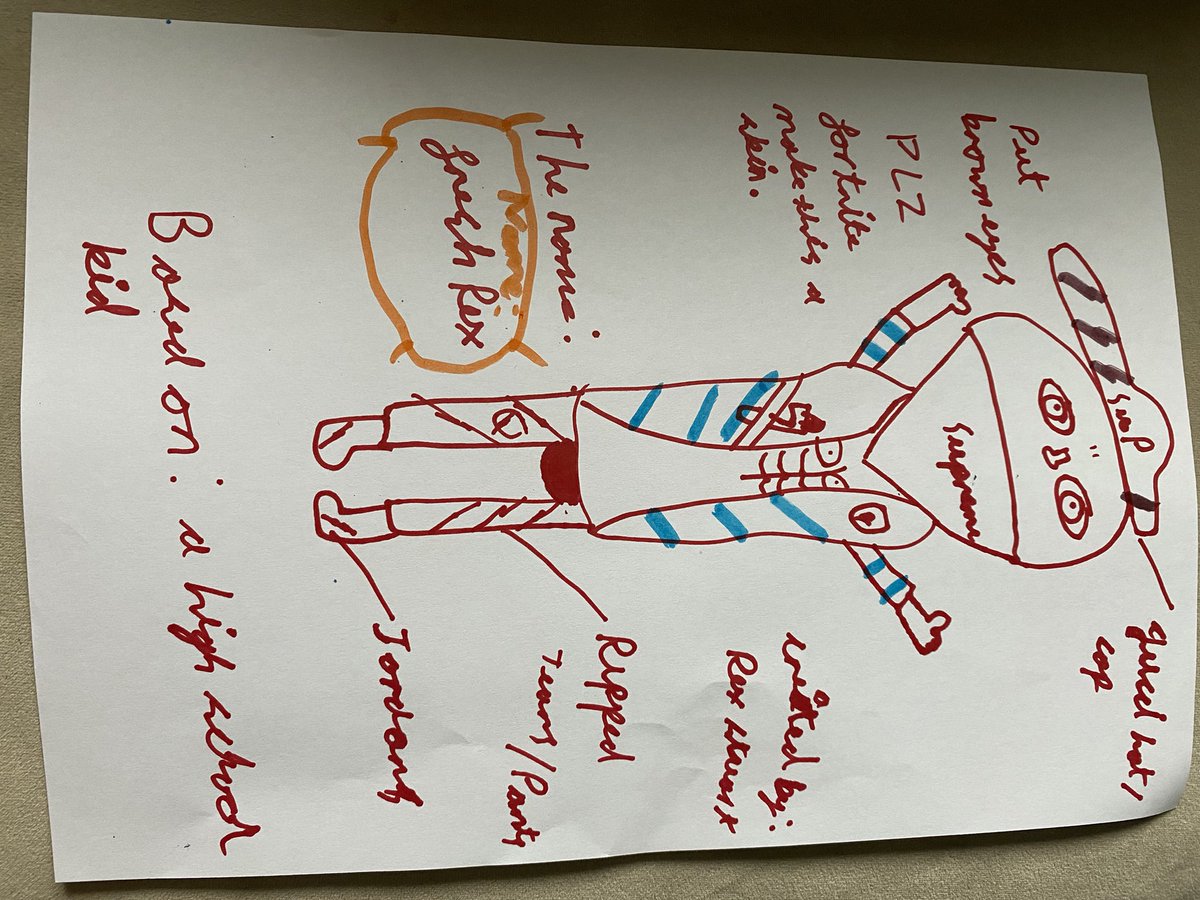 Put
brown eyes
PLZ
fortnite
make this a
skin.
The name:
Name:
Rex
SuP
Supreme
hat,
cap
created by:
Rex
Ripped
Jeans/Pants
Jordans
Based on: a high school
kid